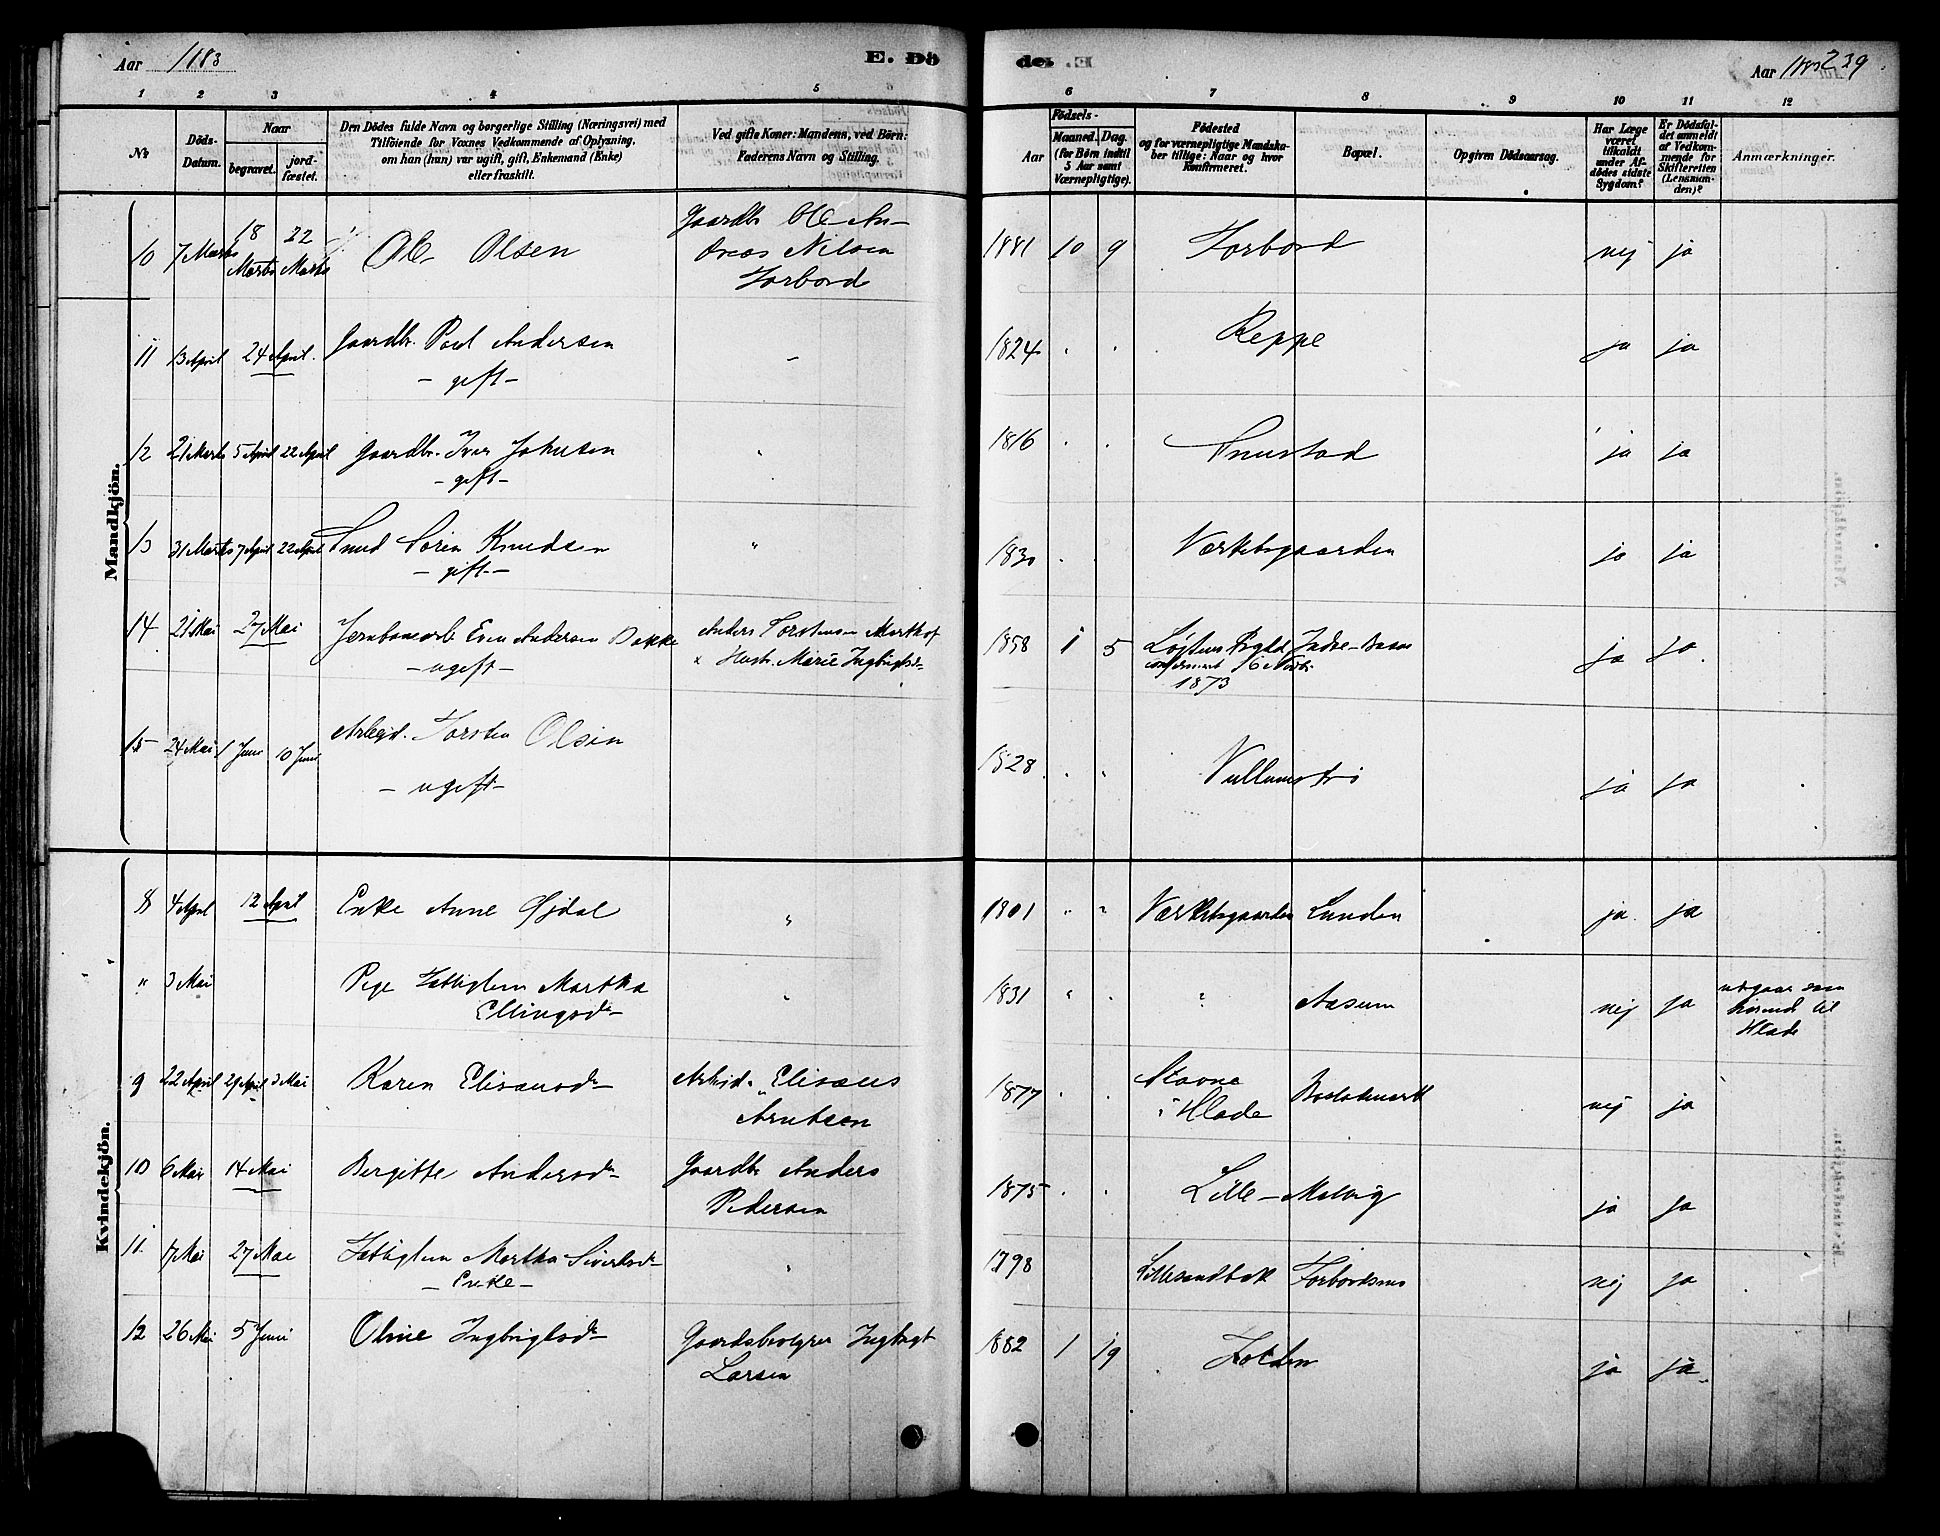 Aar 1883
E. Dö
de. E.
Aar 1883 239
1 2 3 4 5 6 7 8 9 10 11 12
No
Döds-
Datum.
Naar
begravet.
jord-
fæstet.
Den Dödes fulde Navn og borgerlige Stilling (Næringsvei) med
Tilföiende for Voxnes Vedkommende af Oplysning,
om han (hun) var ugift, gift, Enkemand (Enke)
eller fraskilt.
Ved gifte Koner: Mandens, ved Börn:
Faderens Navn og Stilling.
Födsels-
Aar
Maaned. Dag.
(for Börn indtil
5 Aar samt
Værnepligtige).
Födested
og for værnepligtige Mandska-
ber tillige: Naar og hvor
Konfirmeret.
Bopæl.
Opgiven Dödsaarsag.
Har Læge
været
tilkaldt
under Af-
dödes sidste
Sygdom?
Er Dödsfal-
det anmeldt
af Vedkom-
mende for
Skifteretten
(Lensman-
den)?
Anmærkninger.
Mandkjön.
10 7 Marts 18 Marts 22 Marts Ole Olsen Gaardbr Ole An-
dreas Nilsen
Forbord 1881 10 9 Forbord nej ja
11 13 April 24 April. Gaardbr. Paul Andersen - 1824 . . Reppe ja ja
- gift -
12 21 Marts 5 April 22 April Gaardbr. Iver Johnsen " 1816 . . Smistad ja ja
- gift -
13 31 Marts 7 April 22 April Smed Sören Knudsen " 1830 . . Værketsgaarden ja ja
- gift -
14 21 Mai 27 Mai Jernbanearb Even Andersen Bakke Anders Torstensen
Hustr. Marie Ingbrigtsd 1858 1 5 ja ja.
- ugift - 1873
15 24 Mai 1 Juni 10 Juni Arbejd. Torsten Olsen 1828 . . ja ja
- ugift -
Kvindekjön.
8 4 April 12 April Enke Anne Øjdal " 1801 " " Værketsgaarden Lunden ja. ja
" 3 Mai Pige Fattiglem Martha
Ellingsdr " 1831 " . " Aasum nej ja
til
Hlade
9 22 April 29 April 3 Mai Karen Elisæusdr Arbejd. Elisæus
Arntsen 1877 . . Stavne
i Hlade nej ja
10 6 Mai 14 Mai Bergitte Andersdr Gaardbr Anders
Pedersen 1875 . . Lille-Malvig ja ja
11. 17 Mai 27 Mai Fattiglem Martha Sivertsdr " 1798 Lillesandbak nej ja
- Enke -
12 26 Mai 5 Juni Oline Ingbrigtsdr Ingbrigt
Larsen 1882 1 19 ja ja.